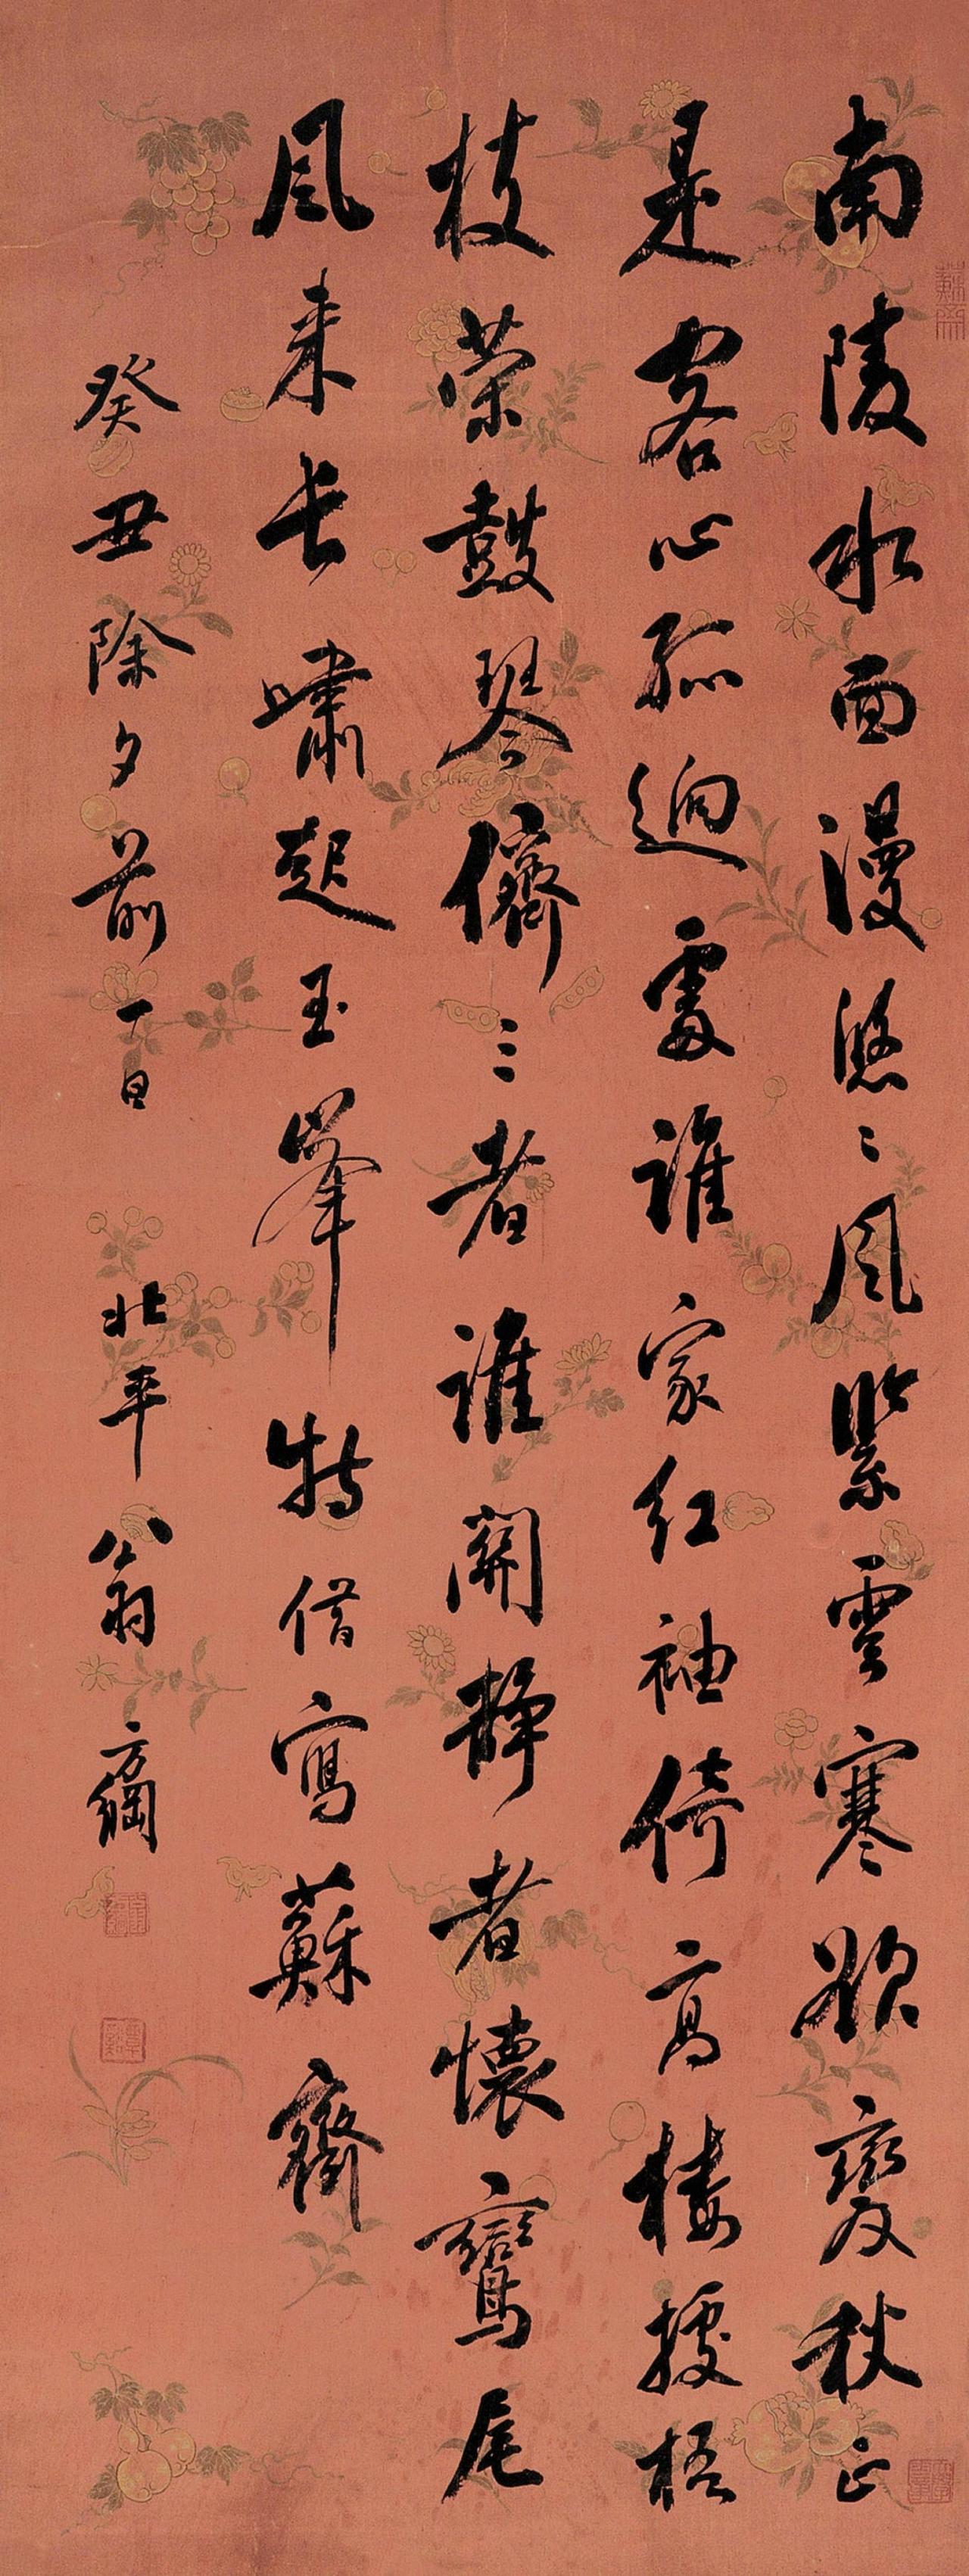 南陵水面漫悠〻風緊雲寒欲變秋正
是客心孤迥處誰家紅袖倚高樓據梧
枝榮鼓琴儕三者誰開靜者懷鸞尾
風来長嘯起玉峯特借寫蘇齋
癸丑除夕前一日 北平翁方綱